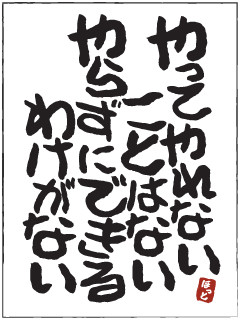 やってやれない
ことはない
やらずにできる
わけがない
ほっと